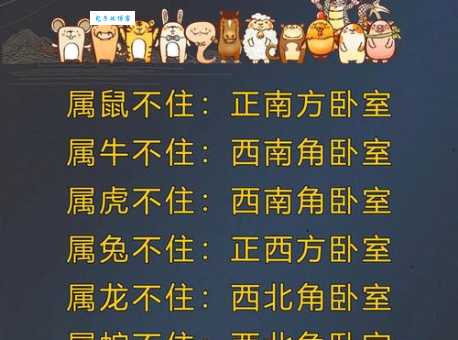 属鼠不住：正南方卧室
属牛不住：西南角卧室
属虎不住：西南角卧室
属兔不住：正西方卧室
属龙不住：西北角卧室
属蛇不住：西北角卧室